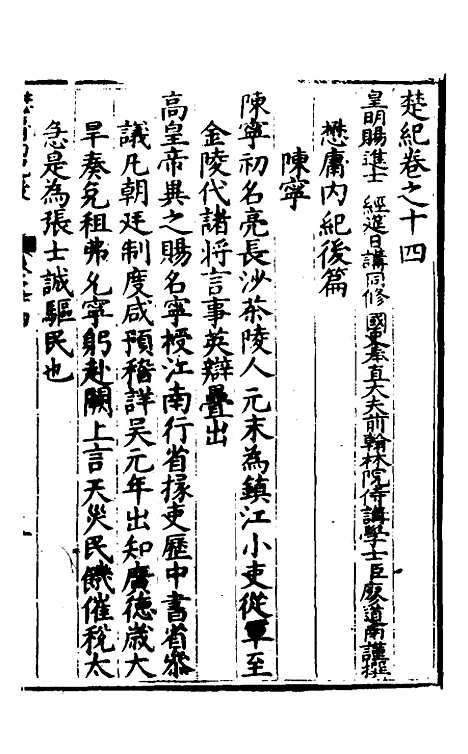 楚紀卷之十四
皇明賜進士 經進日講同修 國史奉直大夫前翰林院侍講學士臣廖道南謹撰
懋庸内紀後篇
陳寧
陳寧初名亮長沙茶陵人元末為鎮江小吏從軍至
金陵代諸將言事英辯疊出
高皇帝異之賜名寧授江南行省掾吏歷中書省叅
議凡朝廷制度咸預稽詳吳元年出知廣德歲大
旱奏免租弗允寧躬赴闕上言天災民饑催稅太
急是為張士誠驅民也